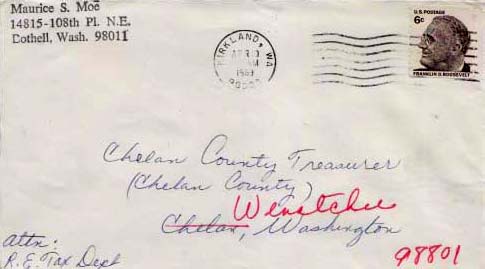 Maurice S. Moe
14815-108th Pl. N.E.
Bothell, Wash. 98011
KIRKLAND, WA
U.S. POSTAGE
6c
FRANKLIN D. ROOSEVELT
Chelan County Treasurer
(Chelan County)
Wenatchee
Chelan, Washington
98801
attn:
R.E. Tax Dept